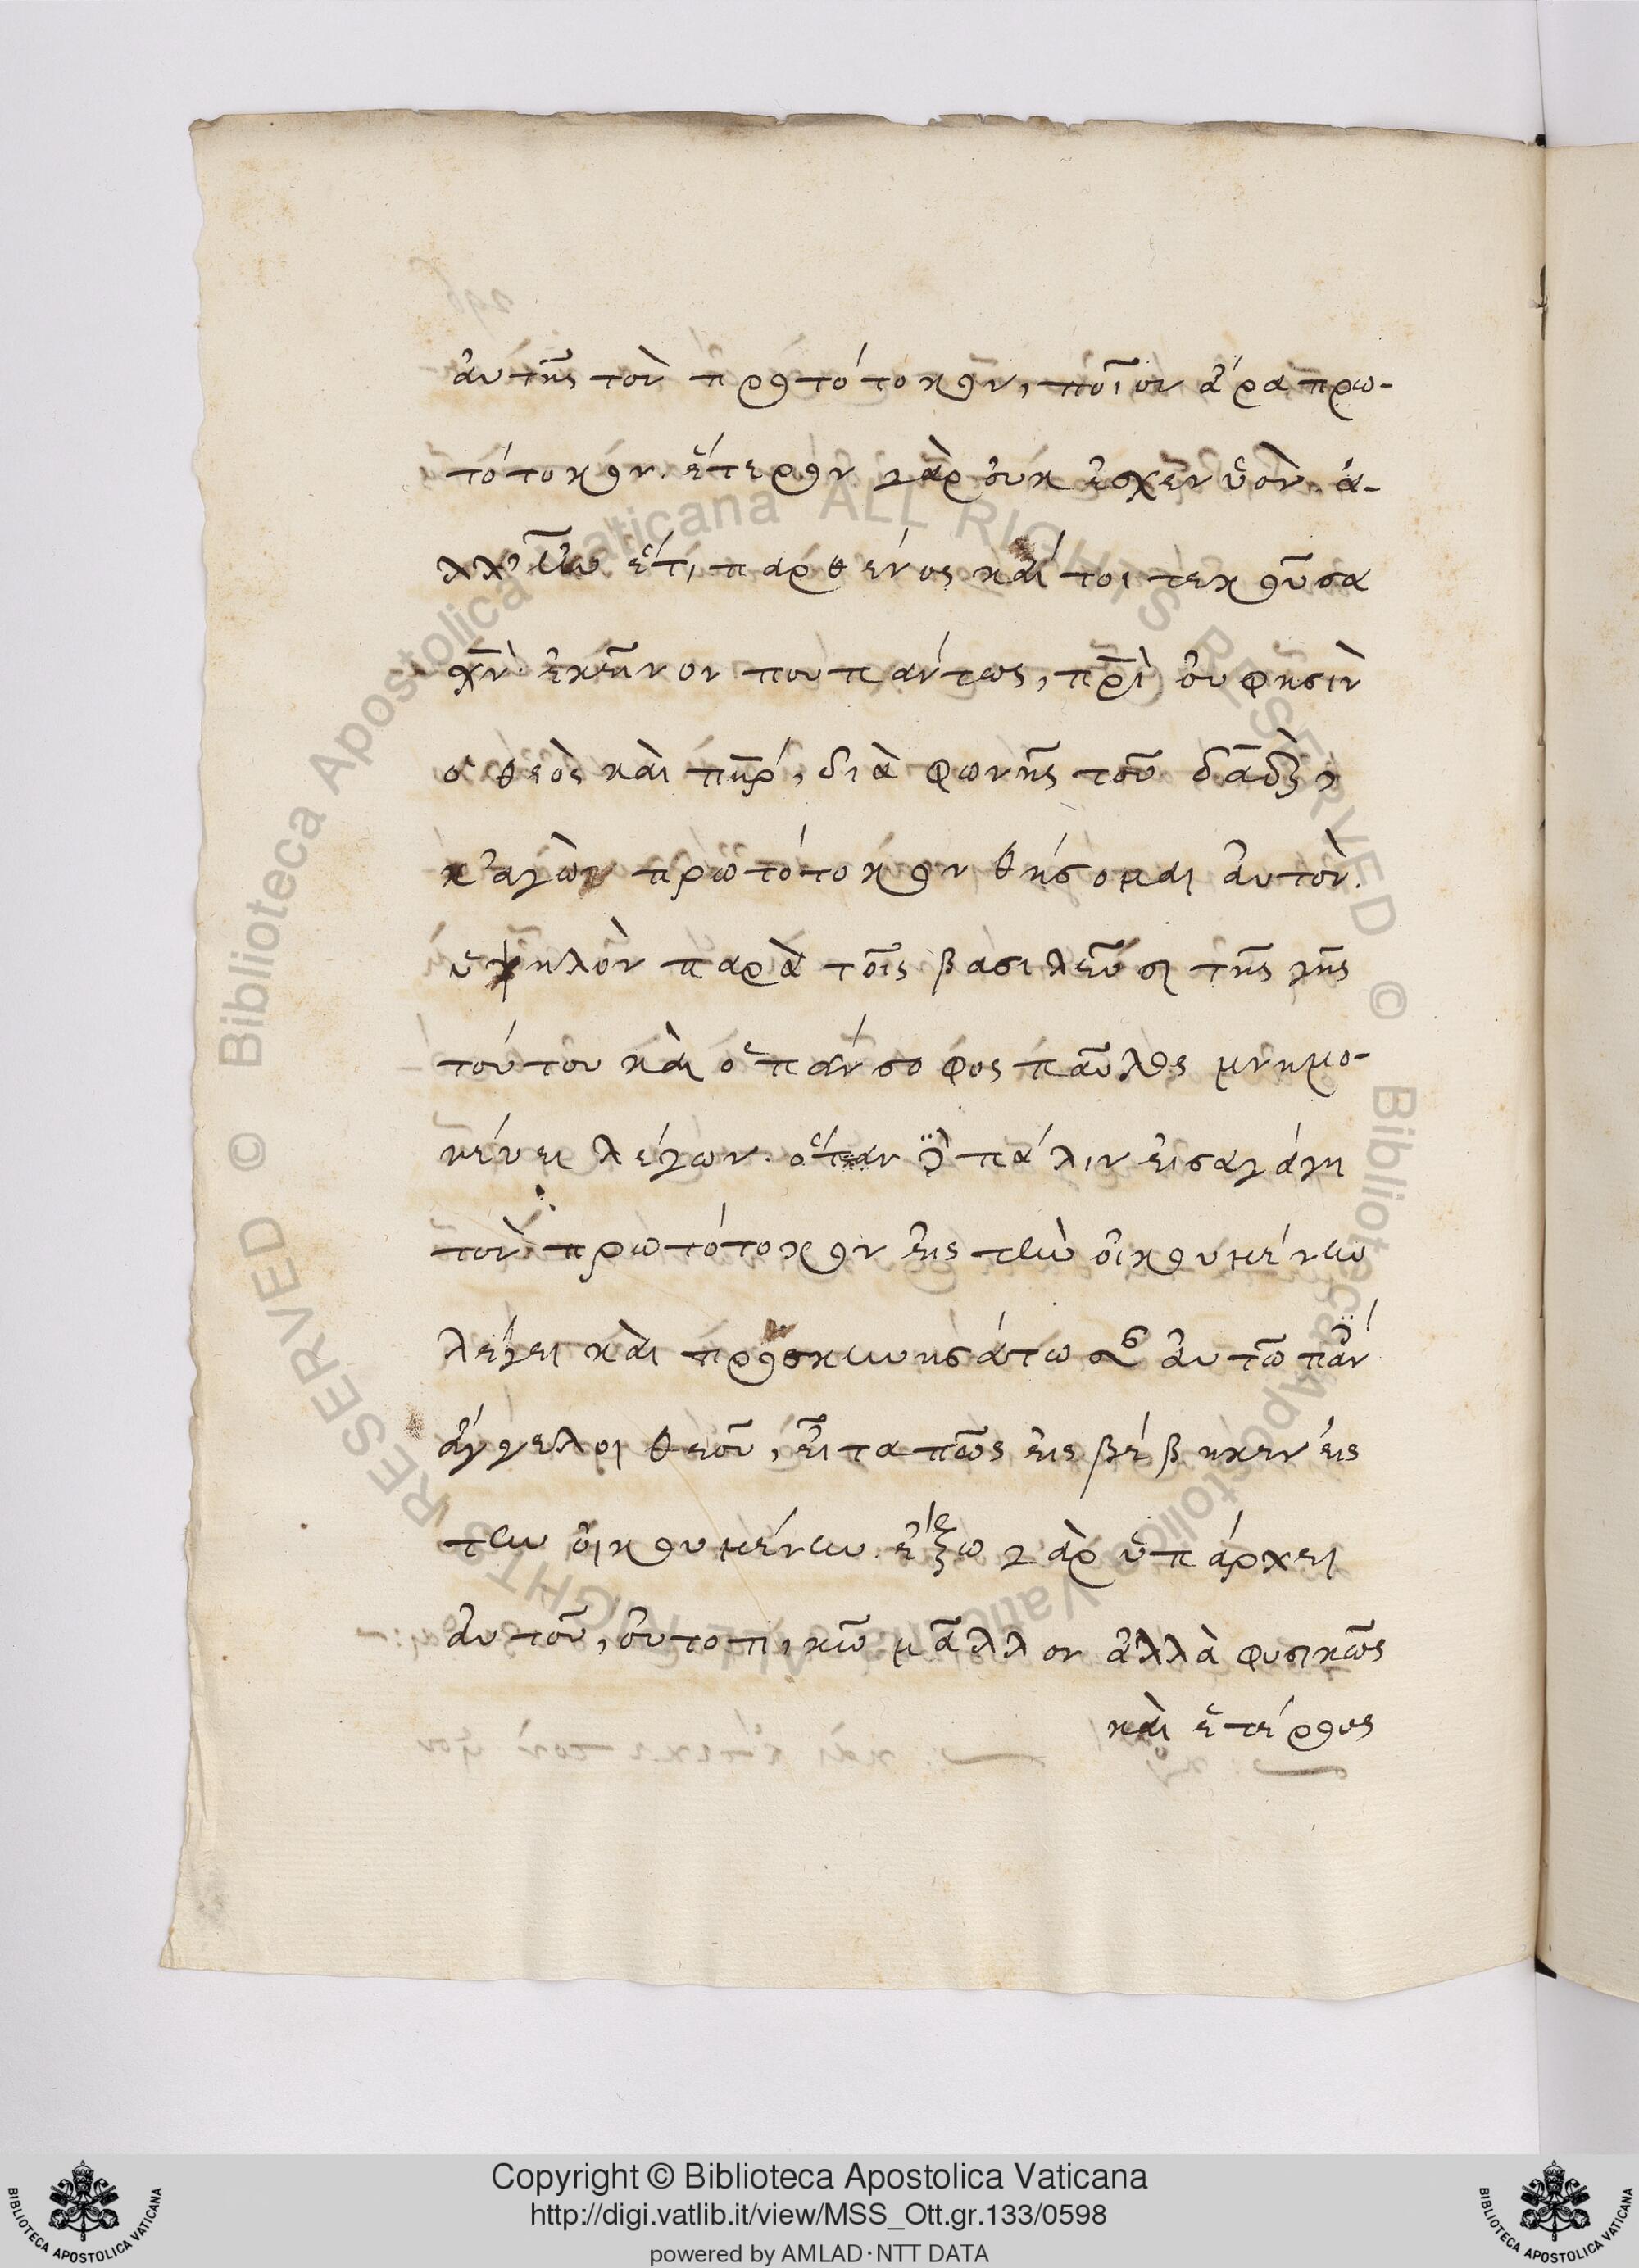 αὐτῆς τὸν πρωτότοκον, ποῖον ἄρα πρω-
τότοκον. ἕτερον γὰρ οὐκ ἔσχεν ὑὸν. ἀ-
λλ' ἦν ἔτι παρθένος καίτοι τεκοῦσα
χν̅. ἐκεῖνον που πάντως, πρὶ οὐ φησὶν
ὁ θεὸς καὶ πηρ, διὰ φωνῆς τοῦ δαδ,
κἀγὼ πρωτότοκον θήσομαι αὐτὸν.
ὑψηλὸν παρὰ τοῖς βασιλεῦσι τῆς γῆς
τούτου καὶ ὁ πάνσοφος παῦλος μνημο-
νεύει λέγων. ὅταν δὲ πάλιν εἰσαγάγη
τὸν πρωτότοκον εἰς τὴν οἰκουμένην
λέγει καὶ προσκυνησάτωσαν αὐτῶ πάν
ἄγγελοι θεοῦ, εἶτα πῶς εἰσβέβηκεν εἰς
την οἰκουμένην. ἔξω γὰρ ὑπάρχει
αὐτοῦ, οὐ τοπικῶ μᾶλλον ἀλλὰ φυσικῶς
καὶ ἑτέρους
Copyright © Biblioteca Apostolica Vaticana
http://digi.vatlib.it/view/MSS_Ott.gr.133/0598
powered by AMLAD·NTT DATA